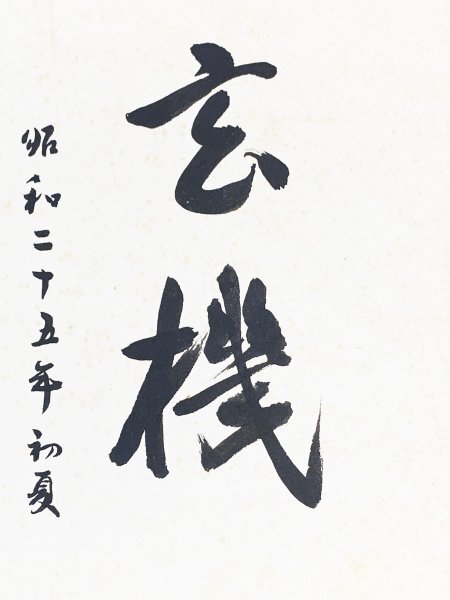 玄機
昭和二十五年初夏